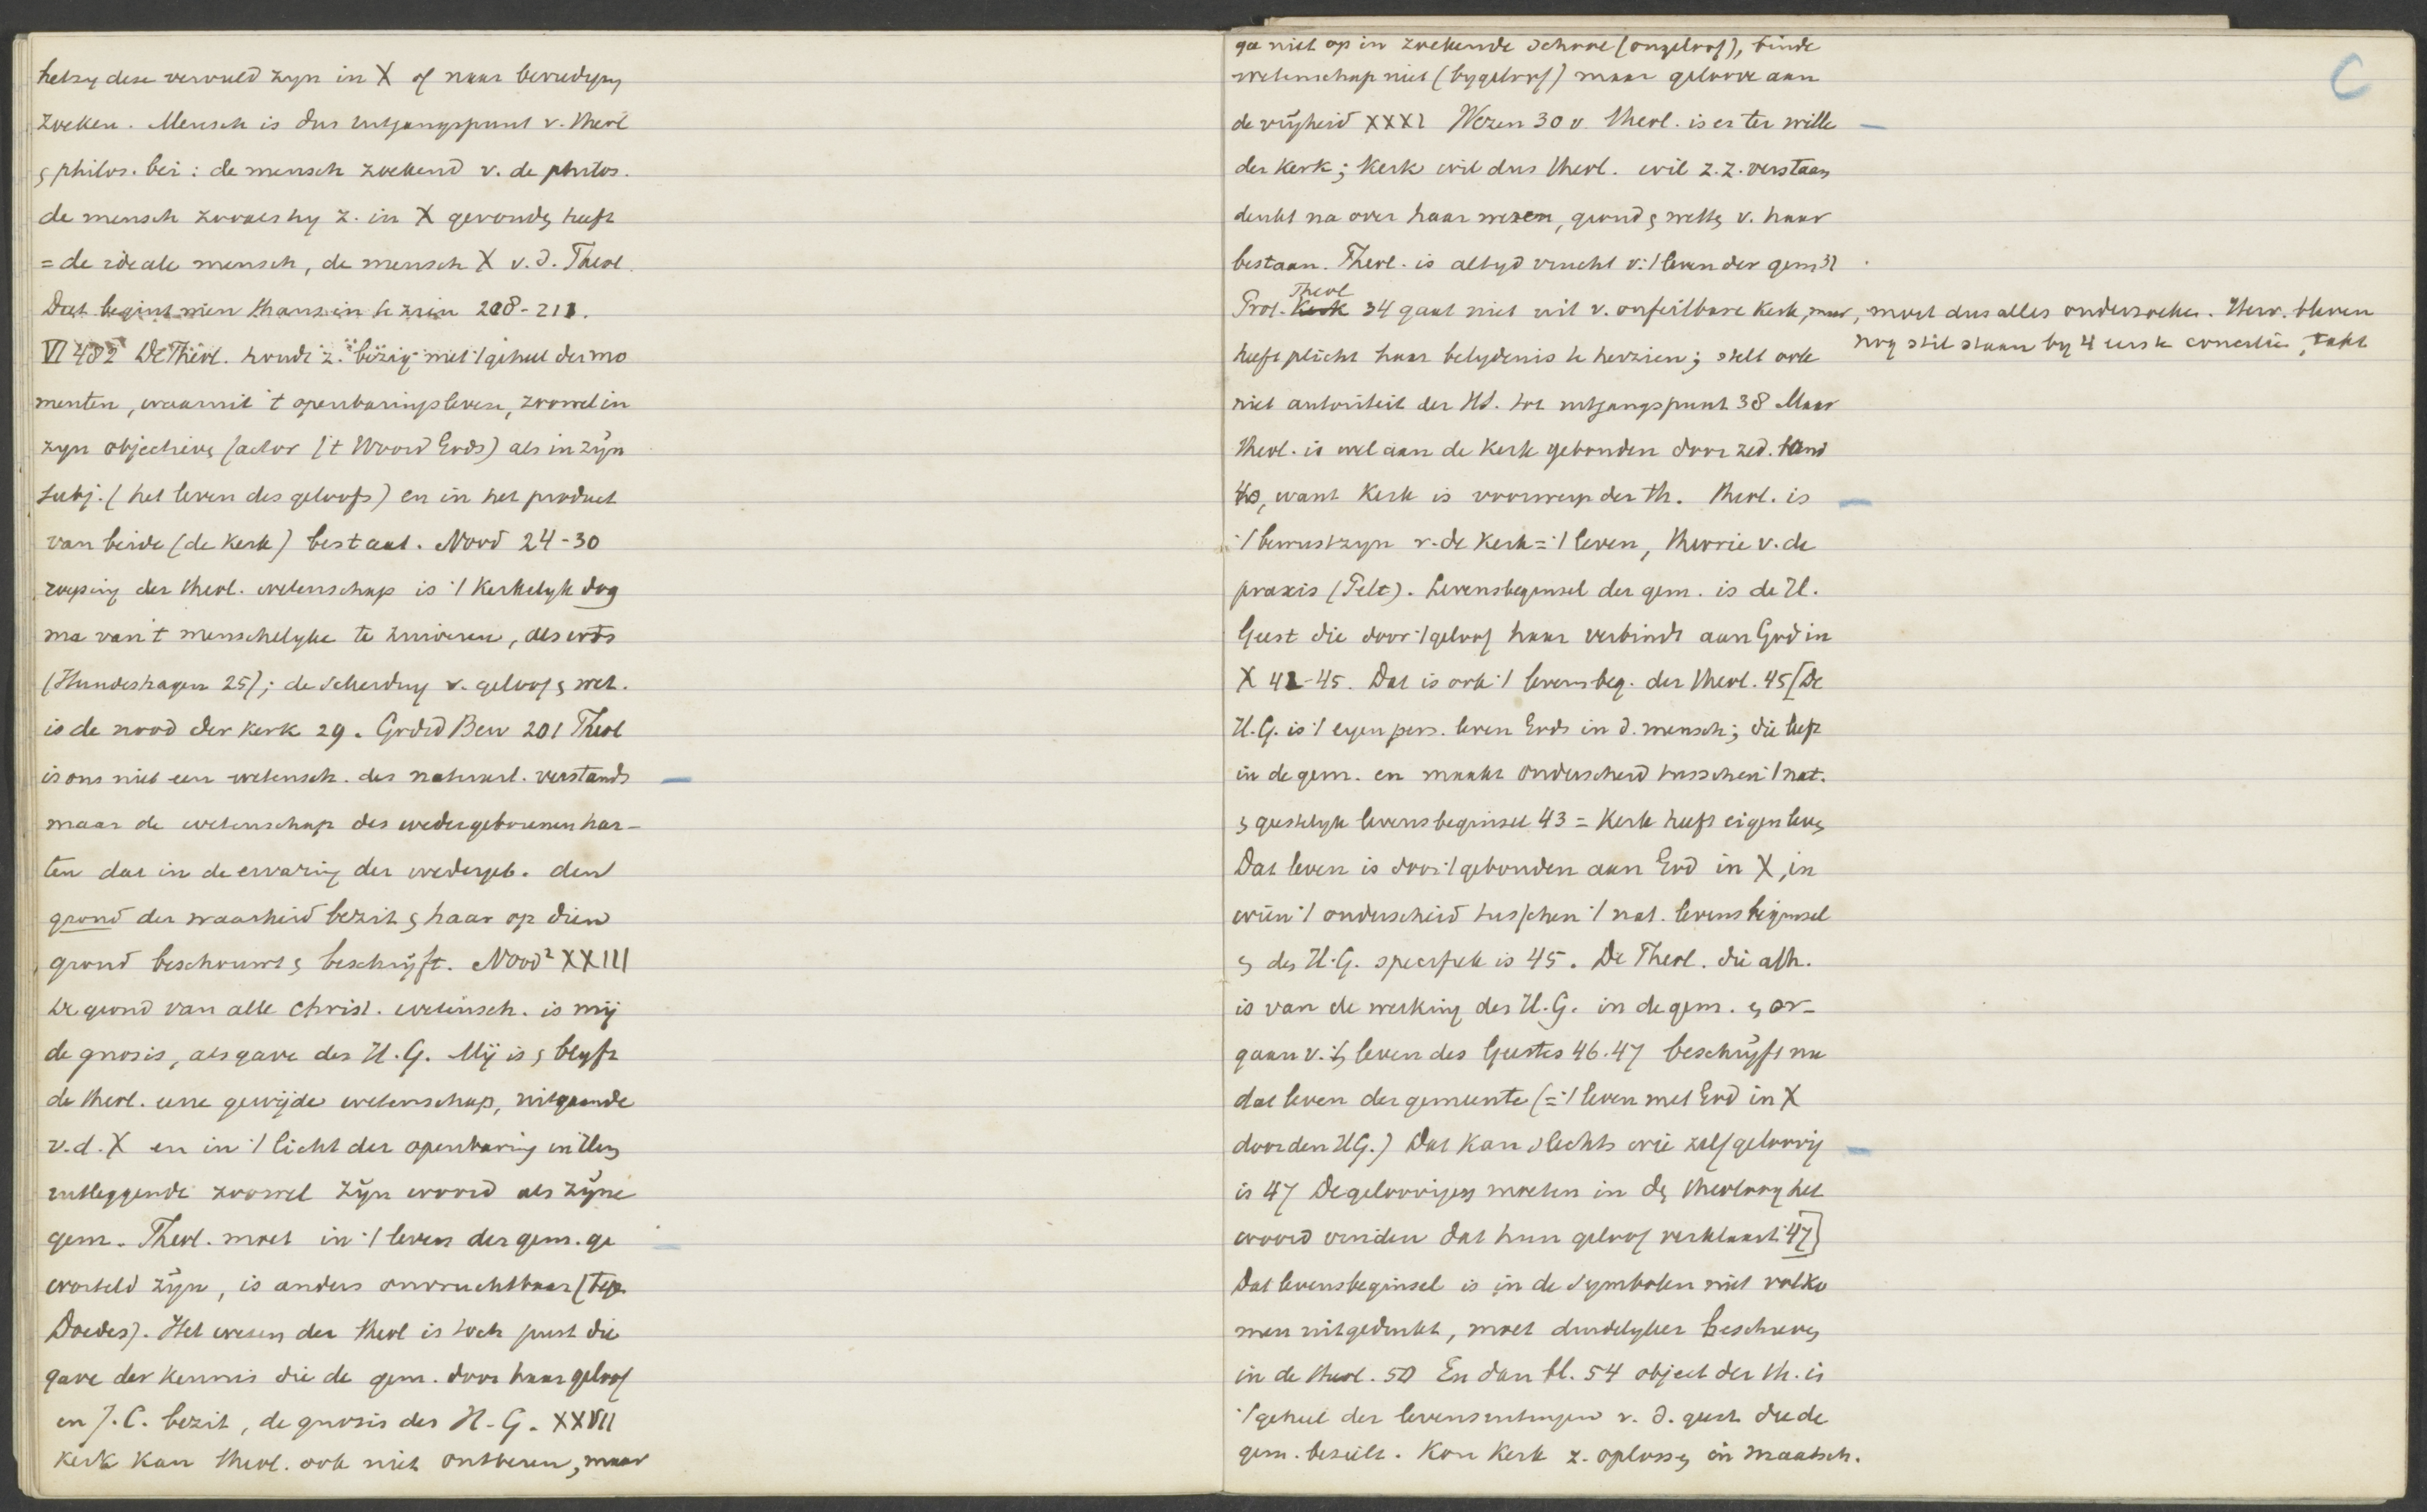 hetzy deze vervuld zyn in X of naar bevrediging
zoeken. Mensch is dus uitgangspunt v. theol
& philos. bei: de mensch zoekend v. de philos.
de mensch zooals hy z. in X gevonden heeft
= de ideale mensch, de mensch X v.d. Theol.
Dat begint men thans in te zien 208-211.
VI 482 De Theol. houdt z. bezig met 't geheel der mo
menten, waaruit 't openbaringsleven, zoowel in
zyn objectieve factor (t Woord Gods) als in zijn
subj. (het leven des geloofs) en in het product
van beide (de kerk) bestaat. Nood 24-30
roeping der theol. wetenschap is 't kerkelyk dog
ma van t menschelyke te zuiveren, als erts
(Hundeshagen 25); de scheiding v. geloof & wet.
is de nood der kerk 29. Grdsd Bew 201 Theol
is ons niet een wetensch. des natuurl. verstands
maar de wetenschap des wedergeborenen har-
ten dat in de ervaring der wedergeb. den
grond der waarheid bezit & haar op dien
grond beschouwt & beschrijft. Nood² XXIII
De grond van alle Christ. wetensch. is mij
de gnosis, als gave des H.G. Mij is & blyft
de theol. eene gewijde wetenschap, uitgaande
v.d. X en in 't licht der openbaring
uitleggende zoowel zijn woord als zijne
gem. Theol. moet in 't leven der gem. ge
worteld zijn, is anders onvruchtbaar (tegen
Doedes). Het wezen der theol is toch juist die
gave der kennis die de gem. door haar geloof
en J.C. bezit, de gnosis des H.G. XXVII
Kerk kan theol. ook niet ontberen, maar
C
ga niet op in zoekende schare (ongeloof), binde
wetenschap niet (bygeloof) maar geloove aan
de vrijheid XXXI Wezen 30 v. theol. is er ter wille
der kerk; kerk wil dus theol. wil z.z. verstaan
denkt na over haar wezen, grond & wetten v. haar
bestaan. Theol. is altyd vrucht v. 't leven der gem 31
Theol
Prot. Kerk 34 gaat niet uit v. onfeilbare kerk, maar, moet dus alles onderzoeken. Herv. bleven
nog stil staan by 4 eerste concilien,
heeft plicht haar belydenis te herzien; stelt ook
niet autoriteit der HS. tot uitgangspunt 38 Maar
theol. is wel aan de kerk gebonden door zed. band
40, want kerk is voorwerp der th. Theol. is
't bewustzyn v. de kerk = 't leven, theorie v. de
praxis (Pelt). Levensbeginsel der gem. is de H.
Geest die door 't geloof haar verbindt aan God in
X 42-45. Dat is ook 't levensbeg. der theol. 45 [De
H.G. is 't eigen pers. leven Gods in d. mensch; die leeft
in de gem. en maakt onderscheid tusschen 't nat.
& geestelyk levensbeginsel 43 = Kerk heeft eigen leven
Dat leven is door 't gebonden aan God in X, in
wien 't onderscheid tusschen 't nat. levensbeginsel
& des H.G. specifiek is 45. De Theol. die afh.
is van de werking des H.G. in de gem. & or-
gaan v. 't leven des Geestes 46.47 beschrijft nu
dat leven der gemeente (= 't leven met God in X
door den HG.) Dat kan slechts wie zelf geloovig
is 47 De geloovigen moeten in de theoloog het
woord vinden dat hun geloof verklaart 47]
Dat levensbeginsel is in de symbolen niet volko
men uitgedrukt, moet duidelyker beschreven
in de theol. 50 En dan bl. 54 object der th. is
't geheel der levensuitingen v. d. geest die de
gem. bezielt. Kon kerk z. oplossen in maatsch.